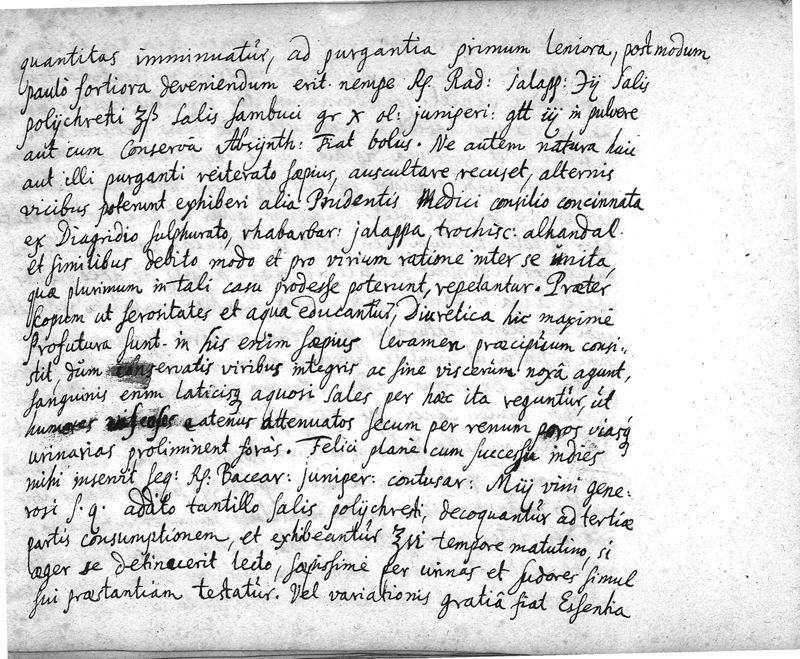 quantitas imminuatur, ad purgantia primum leniora, postmodum
paulò fortiora deveniendum erit. nempe ℞. Rad: jalapp: ℈ij Salis
polijchresti ʒß Salis sambuci gr x ol: juniperi: gtt iij in pulvere
aut cum Conservâ Absÿnth: Fiat bolus. Ne autem natura huic
aut illi purganti reiterato sæpius, auscultare recuset, alternis
vicibus poterunt exhiberi alia Prudentis Medici consilio concinnata
ex Diagridio sulphurato, rhabarbar: jalappa, trochisc: alhandal.
et similibus debito modo et pro virium ratione inter se unita,
quæ plurimum in tali casu prodesse poterunt, repetantur. Præter
scopum ut serositates et aqua educantur, Diuretica hic maximè
Profutura sunt. in his enim sæpius levamen præcipuum consi:
stit, dum conservatis viribus integris ac sine viscerum noxâ agunt,
sanguinis enim laticisq aquosi sales per hæc ita reguntur, ut
humores viscosos eatenus attenuatos secum per renum poros viasq
urinarias proliminent foràs. Felici planè cum successu indies
mihi inservit seq: ℞: Baccar: juniper: contusar: Miij vini gene:
rosi s. q. addito tantillo salis polijchresti, decoquantur ad tertiæ
partis consumptionem, et exhibeantur ʒvi tempore matutino, si
æger se detinuerit lecto, sæpissimè per urinas et sudores simul
sui præstantiam testatur. Vel variationis gratiâ fiat Essentia